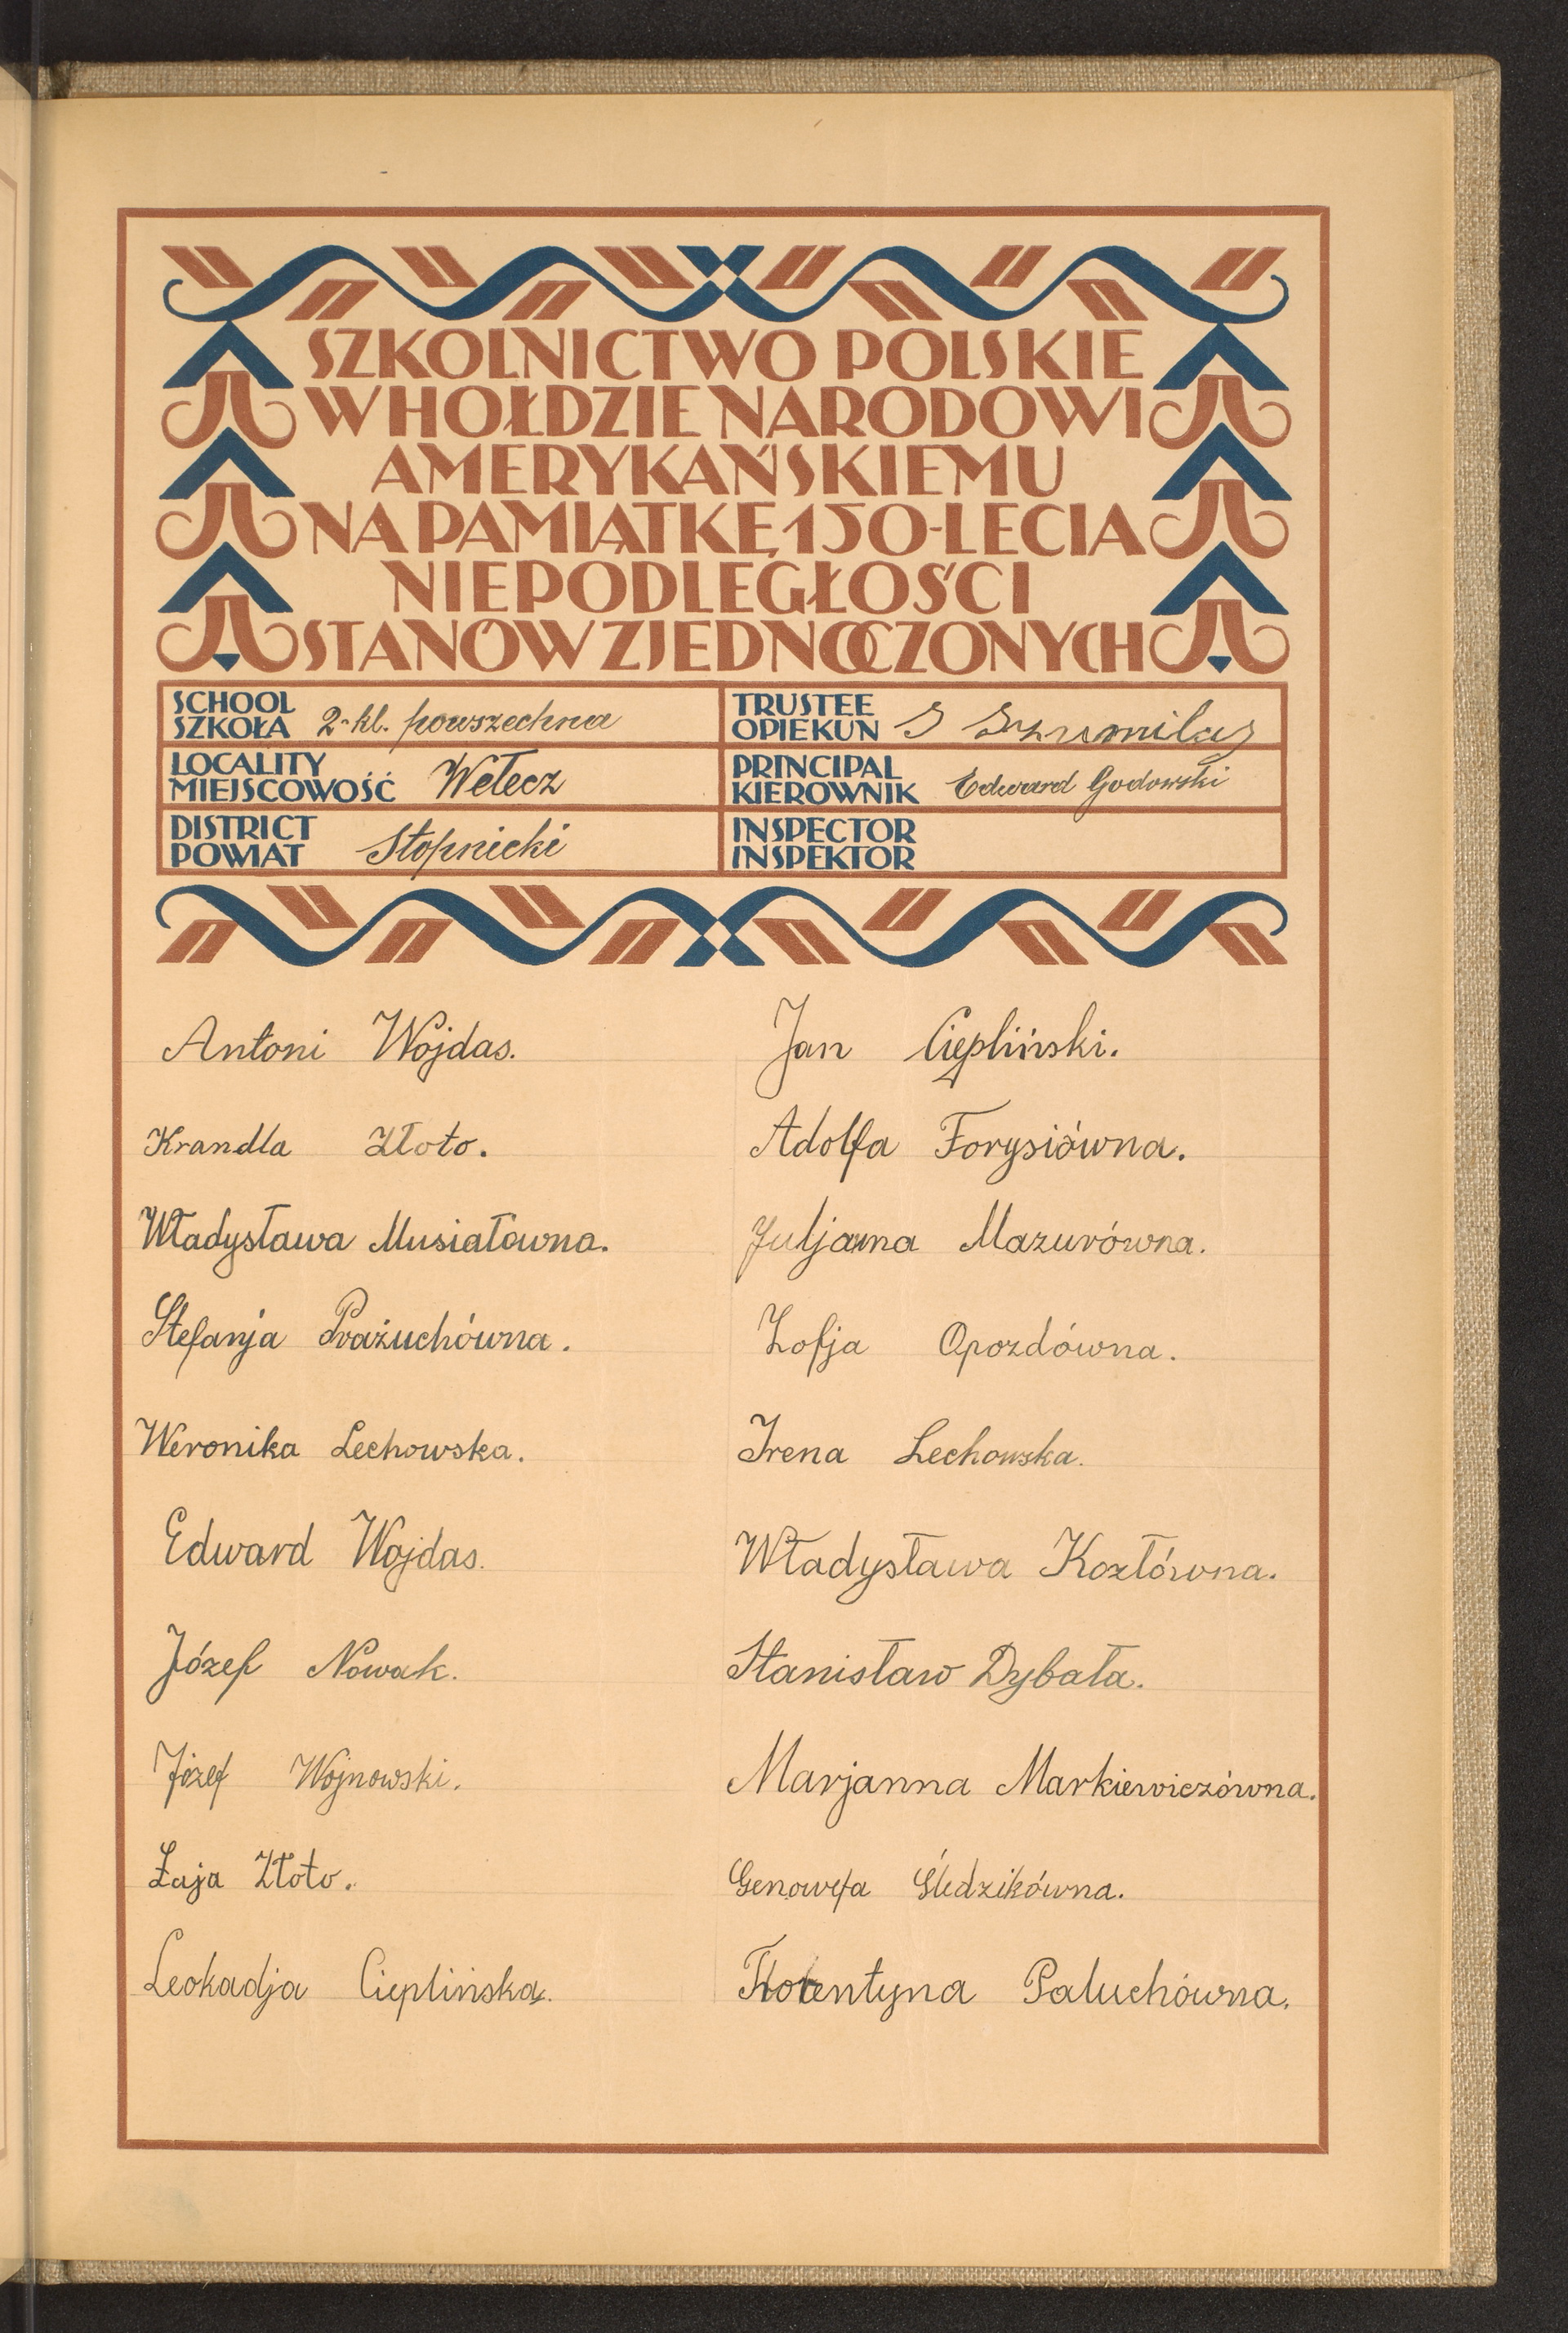 SZKOLNICTWO POLSKIE
W HOŁDZIE NARODOWI
AMERYKAŃSKIEMU
NA PAMIĄTKĘ 150-LECIA
NIEPODLEGŁOŚCI
STANÓW ZJEDNOCZONYCH
SCHOOL
SZKOŁA 2-kl. powszechna
LOCALITY
MIEJSCOWOŚĆ Wełecz
DISTRICT
POWIAT Stopnicki
TRUSTEE
OPIEKUN S Szumilas
PRINCIPAL
KIEROWNIK Edward Godowski
INSPECTOR
INSPEKTOR
Antoni Wojdas.
Krandla Złoto.
Władysława Musiałowna.
Stefanja Prażuchówna.
Weronika Lechowska.
Edward Wojdas.
Józef Nowak.
Józef Wojnowski.
Łaja Złoto.
Leokadja Cieplińska.
Jan Ciepliński.
Adolfa Forysiówna.
Juljanna Mazurówna.
Zofja Opozdówna.
Irena Lechowska.
Władysława Kozłówna.
Stanisław Dybała.
Marjanna Markiewiczówna.
Genowefa Śledzikówna.
Florentyna Paluchówna.